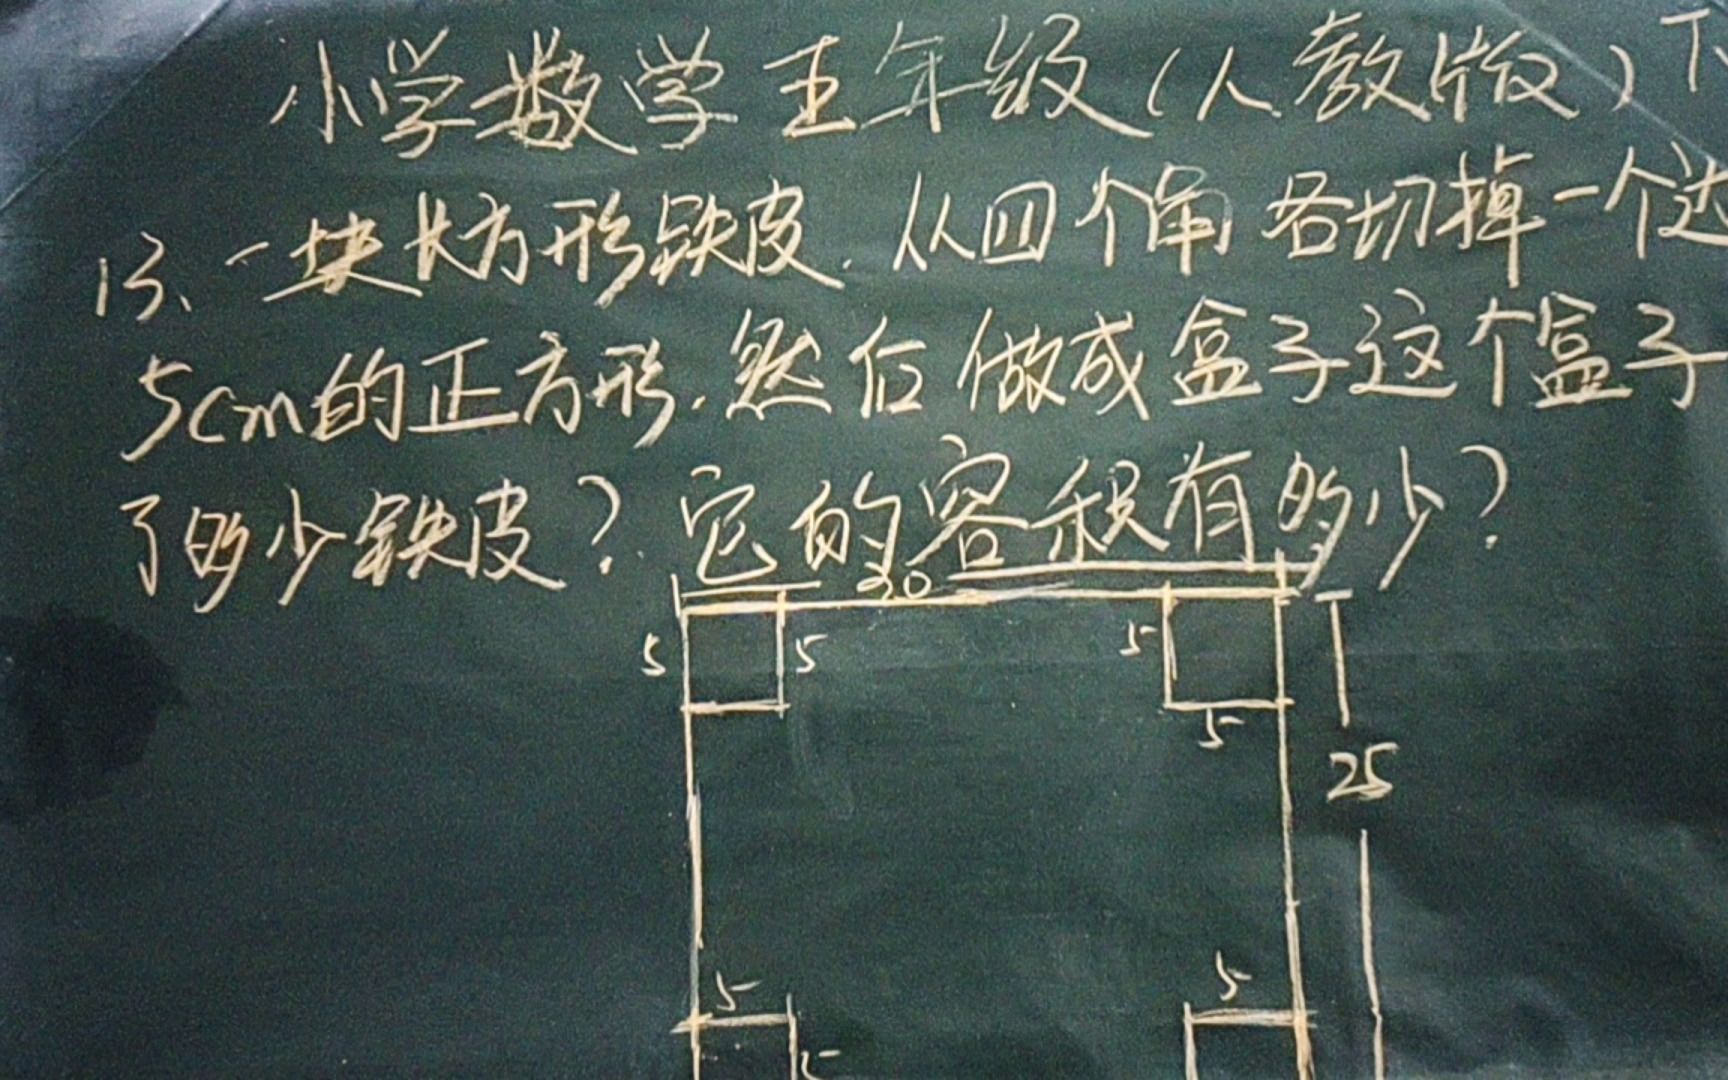 小学数学五年级(人教版)下
13、一块长方形铁皮.从四个角各切掉一个边
5cm的正方形.然后做成盒子这个盒子
了多少铁皮?它的容积有多少?
30
5 5 5
5
25
5 5
5